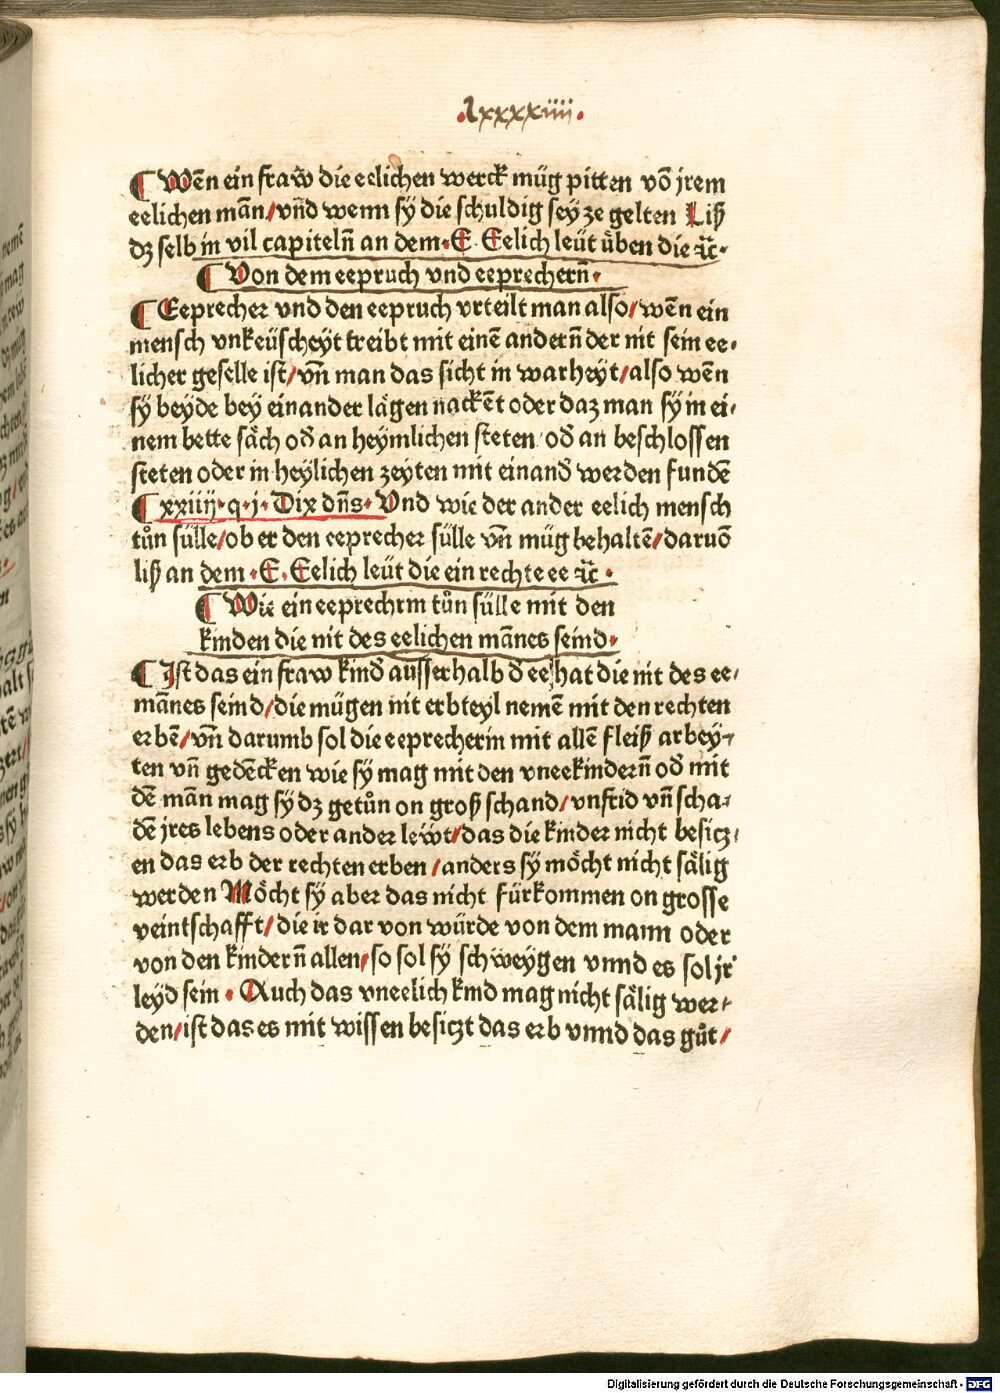 .lxxxxiiii.
¶ Wen̄ ein fraw die eelichen werck müg pitten vō jrem
eelichen mān/vn̄d wenn sÿ die schuldig seÿ ze gelten Liß
dz selb in vil capiteln̄ an dem·E· Eelich leüt ůben die ꝛc̄·
¶ Von dem eepruch vnd eeprechern̄·
¶ Eeprecher vnd den eepruch vrteilt man also/wēn ein
mensch vnkeüscheÿt treibt mit einē andern̄ der nit sein ee-
licher geselle ist/vn̄ man das sicht in warheÿt/also wēn
sÿ beÿde beÿ einander lägen nackēt oder daz man sÿ in ei-
nem bette säch od̄ an heÿmlichen steten/od̄ an beschlossen
steten oder in heÿlichen zeÿten mit einand̄ werden fundē
¶ xxiiij·q·j· Dix dn̄s· Vnd wie der ander eelich mensch
tůn sülle/ob er den eeprecher sülle vn̄ müg behaltē/daruō
liß an dem·E· Eelich leüt die ein rechte ee ꝛc̄·
¶ Wie ein eeprechrin tůn sülle mit den
kinden die nit des eelichen mānes seind·
¶ Ist das ein fraw kind̄ ausserhalb d̄ ee hat die nit des ee-
mānes seind/die mügen nit erbteyl nemē mit den rechten
erbē/vn̄ darumb sol die eeprecherin mit allē fleiß arbeÿ-
ten vn̄ gedēcken wie sÿ mag mit den vneekindern̄ od̄ mit
dē mān mag sÿ dz getůn on groß schand/vnfrid vn̄ scha-
dē jres lebens oder ander lewt/das die kinder nicht besicz-
en das erb der rechten erben/anders sÿ möcht nicht sälig
werden Möcht sÿ aber das nicht fürkommen on grosse
veintschafft/die ir dar von würde von dem mann oder
von den kindern̄ allen/so sol sÿ schweÿgen vnnd es sol jr
leÿd sein· Auch das vneelich kind mag nicht sälig wer-
den/ist das es mit wissen besiczt das erb vnnd das gůt/
Digitalisierung gefördert durch die Deutsche Forschungsgemeinschaft - DFG